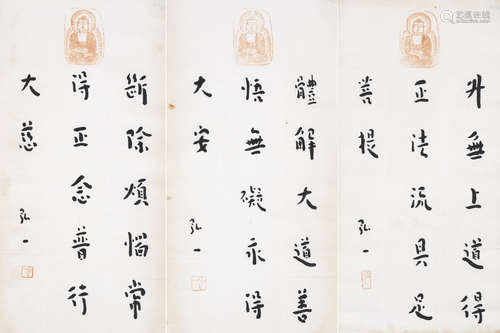 升無上道得
正法流具足
菩提
弘一
體解大道善
悟無礙永得
大安
弘一
斷除煩惱常
得正念普行
大慈
弘一